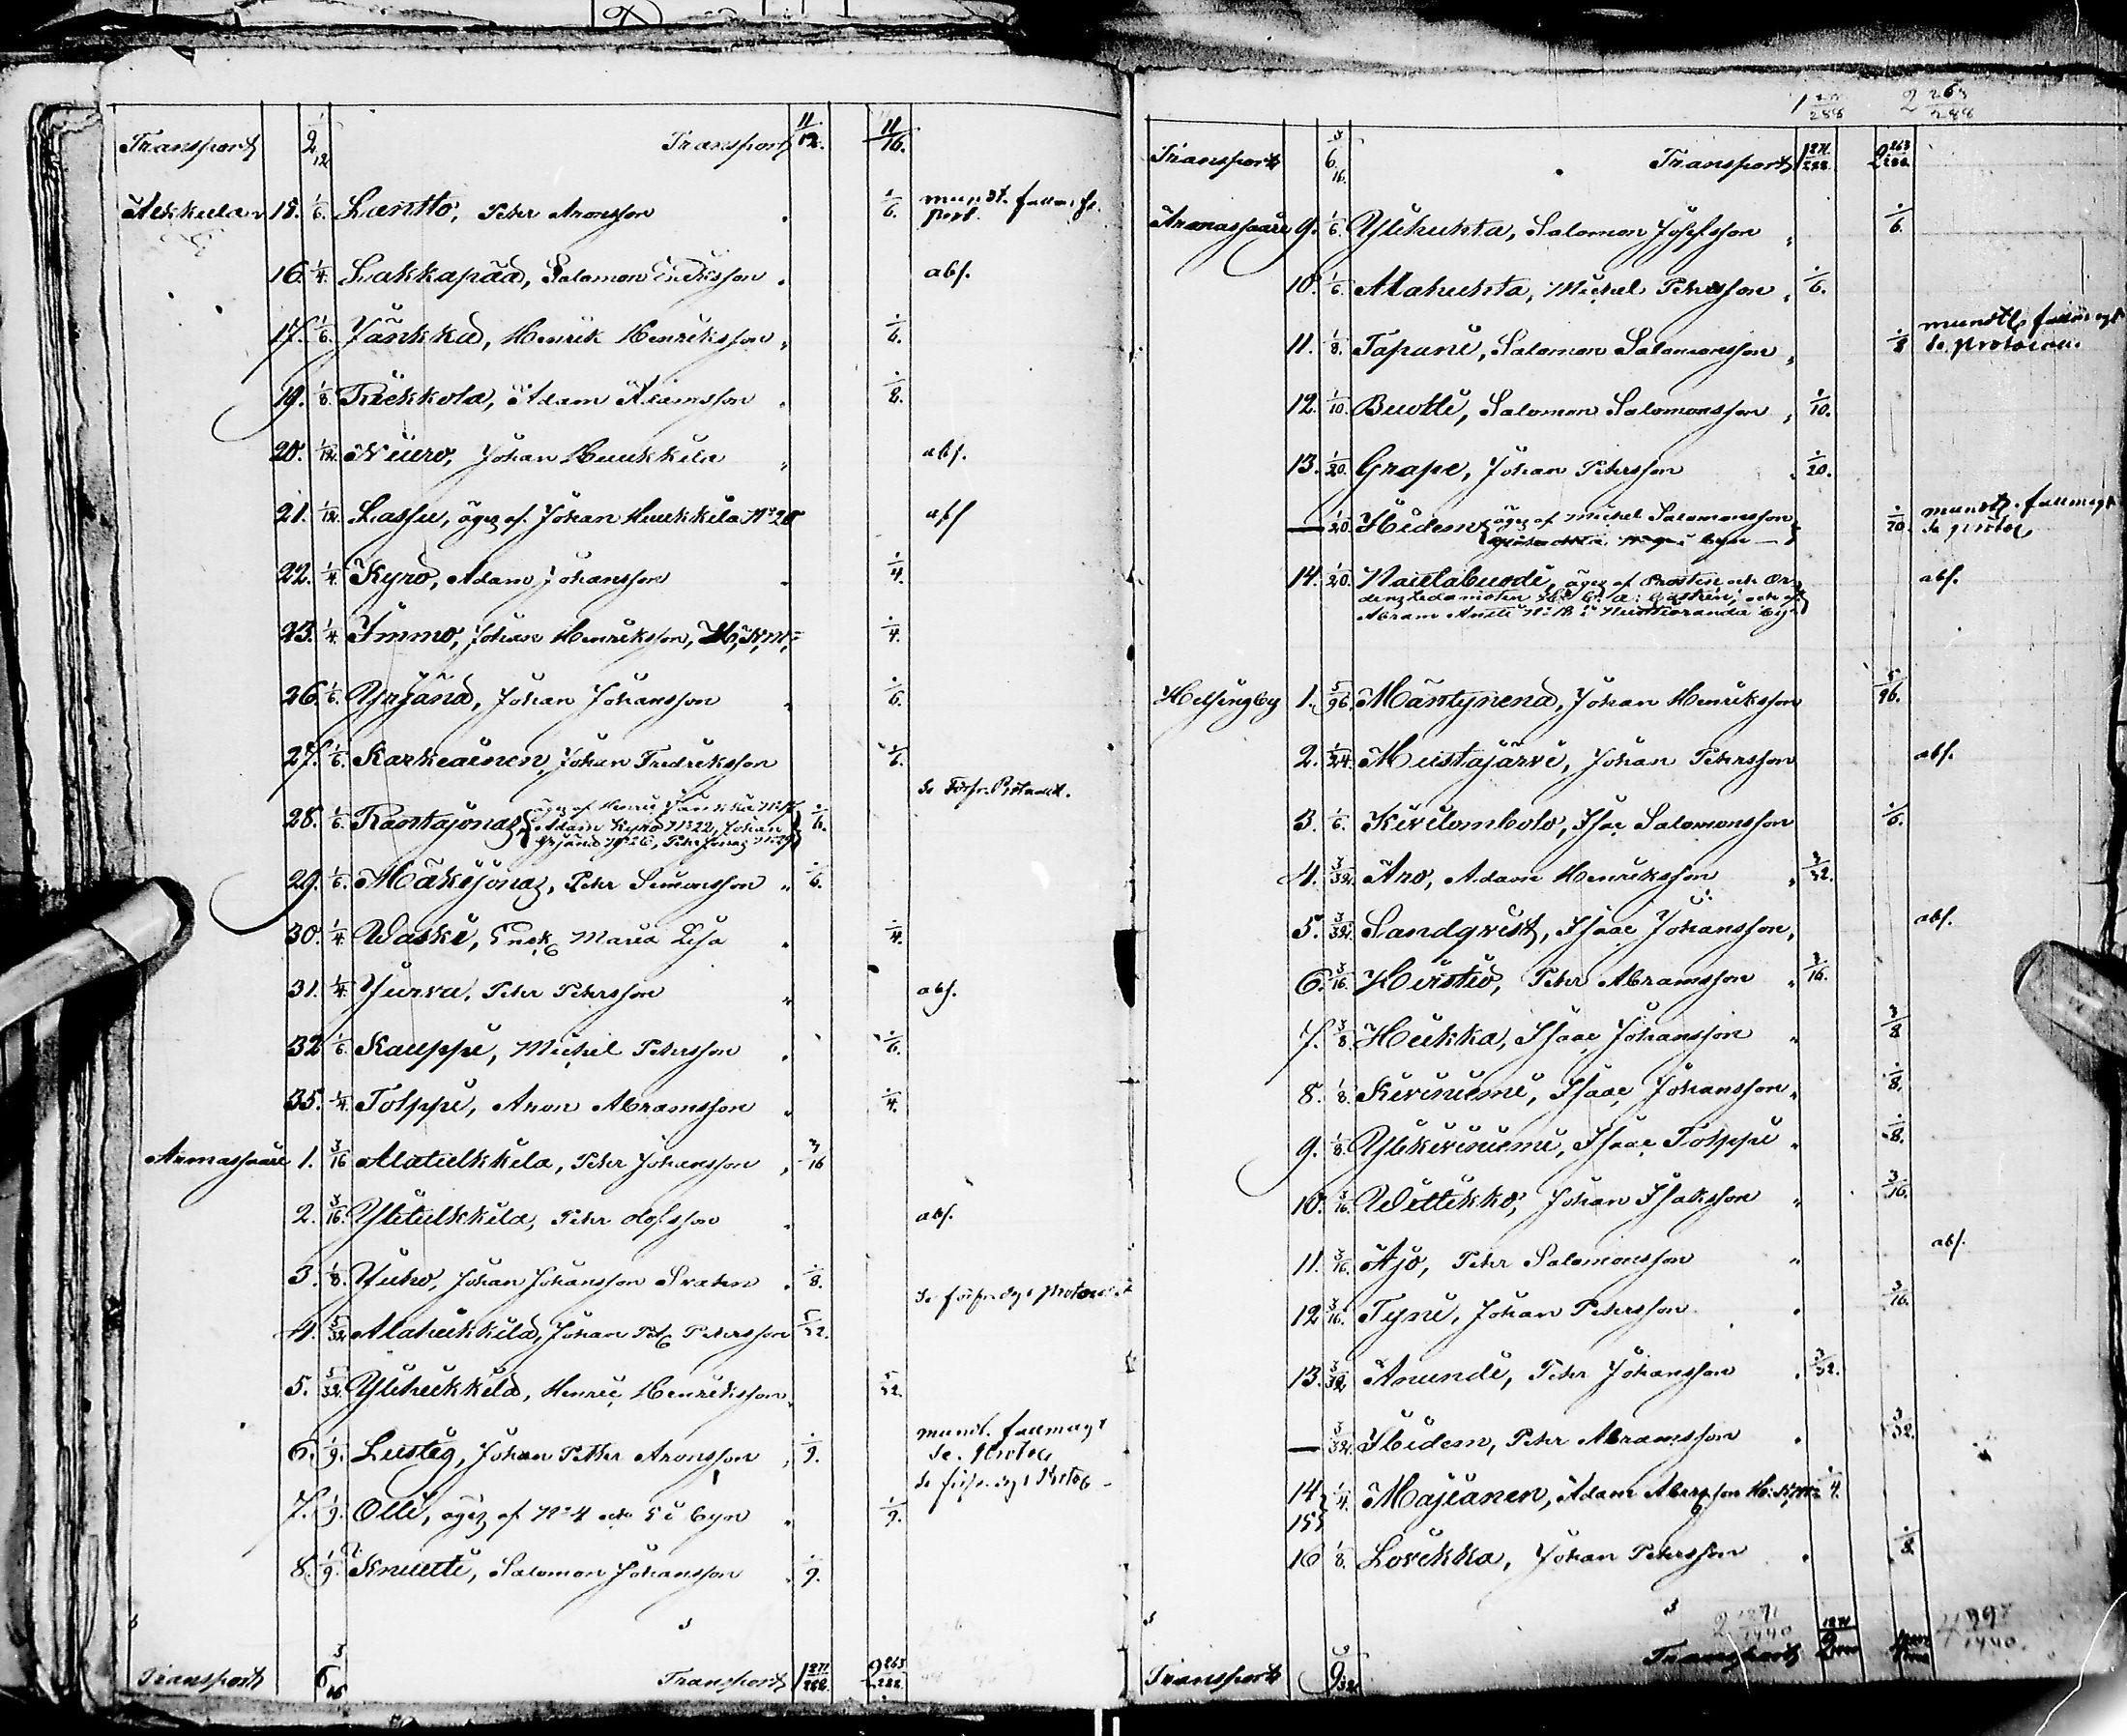 Transport 2 1/12 Transport 11/12. 11/16.
Ækkula 15. 1/6. Lantto, Petter Aronsson 1/6. mundt. fullm. se
prot.
16. 1/4. Lakkapää, Salomon Ericksson abs.
17. 1/6. Jänkkä, Henrik Henriksson 1/6.
19. 1/8. Riekkola, Adam Adamsson 1/8.
20. 1/12. Niuro, Johan Huukkila abs.
21. 1/12. Lassu, äges af Johan Huukkila No 20 abs
22. 1/4. Kyrö, Adam Johansson 1/4.
23. 1/4. Immo, Johan Henriksson, 1/4.
26. 1/6. Yrjänä, Johan Johansson 1/6.
27. 1/6. Karkeainen, Johan Fredriksson 1/6.
28. 1/6. Rantajonas, äges af Henric Jänkkä No 17, 1/6. se Förs. Protocol.
Adam Kyrö No 22, Johan
Yrjänä No 26, Petter Jonas No 29
29. 1/6. Mäkijonas, Petter Simonsson 1/6.
30. 1/4. Waski, Enk. Maria Lisa 1/4.
31. 1/4. Jurva, Petter Petersson abs.
32 1/6. Kauppi, Michel Petersson 1/6.
35. 1/4. Tolppi, Aron Abramsson 1/4.
Armassaari 1. 3/16 Alatulkkila, Petter Johansson 3/16
2. 3/16. Ylitulkkila, Petter Olofsson abs.
3. 1/8. Juho, Johan Johansson Svaten 1/8.
4. 5/32. Alahuikkila, Johan Pet. Petersson 5/32.
5. 5/32. Ylihuikkila, Henric Henriksson 5/32.
6. 1/9. Lustig, Johan Petter Aronsson 1/9. mundt. fullmagt
se. Protoc
7. 1/9. Olli, äges af No 4 och 5 i byn 1/9.
8. 1/9. Knuutti, Salomon Johansson 1/9.
Transport 6 3/16 Transport 1 271/288 2 263/288
2 263/288
Transport 6 3/16. Transport 1 271/288. 2 263/288
Armassaari 9. 1/6. Ylihuhta, Salomon Josefsson 1/6.
10. 1/6. Alahuhta, Michel Petersson 1/6.
11. 1/8. Tapani, Salomon Salomonsson 1/8 mundtl. fullmagt
se protocoll.
12. 1/10. Buotti, Salomon Salomonsson 1/10.
13. 1/20. Grape, Johan Petersson 1/20.
— 1/20. Ibidem, äges af Michel Salomonsson 1/20. mundtl. fullmagt
se protoc
14. 1/20. Naulabuodi, äges af Prosten och Or- abs.
densledamoten
Helsingby 1. 5/96. Mäntynenä, Johan Henriksson 5/96.
2. 1/24. Mustajärvi, Johan Petersson abs.
3. 1/6. Kirilombolo, Isac Salomonsson 1/6.
4. 3/32. Aro, Adam Henriksson 3/32.
5. 3/32. Sandqvist, Isaac Johansson abs.
6. 3/16. Hirstiö, Petter Abramsson 3/16.
7. 3/8. Hukka, Isaac Johansson 3/8
8. 1/8. Kiviniemi, Isaac Johansson 1/8.
9. 1/8. Ylikiviniemi, Isaac Tolppi 1/8.
10. 3/16. Wittikko, Johan Isaksson 3/16.
11. 3/16. Ajo, Petter Salomonsson abs.
12 3/16. Tyni, Johan Petersson 3/16.
13. 3/32 Arundi, Petter Johansson 3/32.
— 3/32. Ibidem, Petter Abramsson 3/32.
14 1/4. Majianen, Adam 1/4.
15
16 1/8. Lovikka, Johan Petersson 1/8
2 1271/1440 4 997/1440.
Transport 9 9/32 Transport